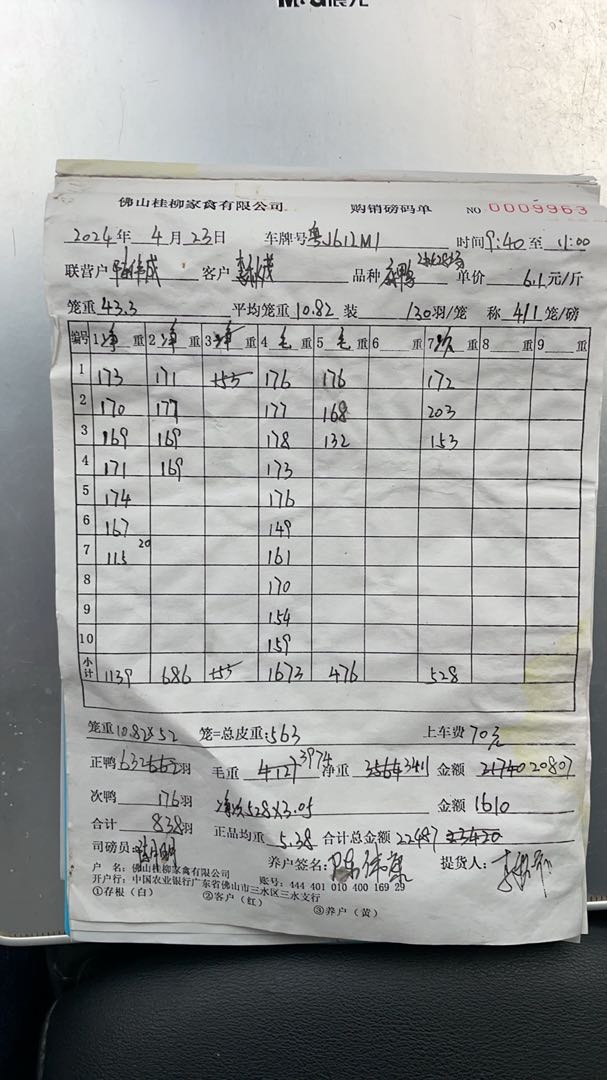 M&G晨光
佛山桂柳家禽有限公司 购销磅码单 NO 0009963
2024年 4月23日 车牌号粤J612M1 时间9:40至 11:00
联营户 客户 品种 单价 6.1元/斤
笼重43.3 平均笼重10.82 装 120羽/笼 称 4/1笼/磅
编号 1净重 2净重 3净重 4毛重 5毛重 6重 7次重 8重 9重
1 173 171 153 176 176 172
2 170 177 177 168 203
3 169 169 178 132 153
4 171 169 173
5 174 176
6 167 149
7 115 20 161
8 170
9 154
10 159
小计 1139 686 153 1673 476 528
笼重10.82×52 笼=总皮重:563 上车费70元
正鸭632 662羽 毛重 4127 3974 净重 3564 3411 金额 21740 20807
次鸭 176羽 净次528×3.05 金额1610
合计 838羽 正品均重 5.38 合计总金额22487 23420
司磅员: 养户签名: 提货人:
户 名:佛山桂柳家禽有限公司 账号:444 401 010 400 169 29
开户行:中国农业银行广东省佛山市三水区三水支行
①存根(白) ②客户(红) ③养户(黄)